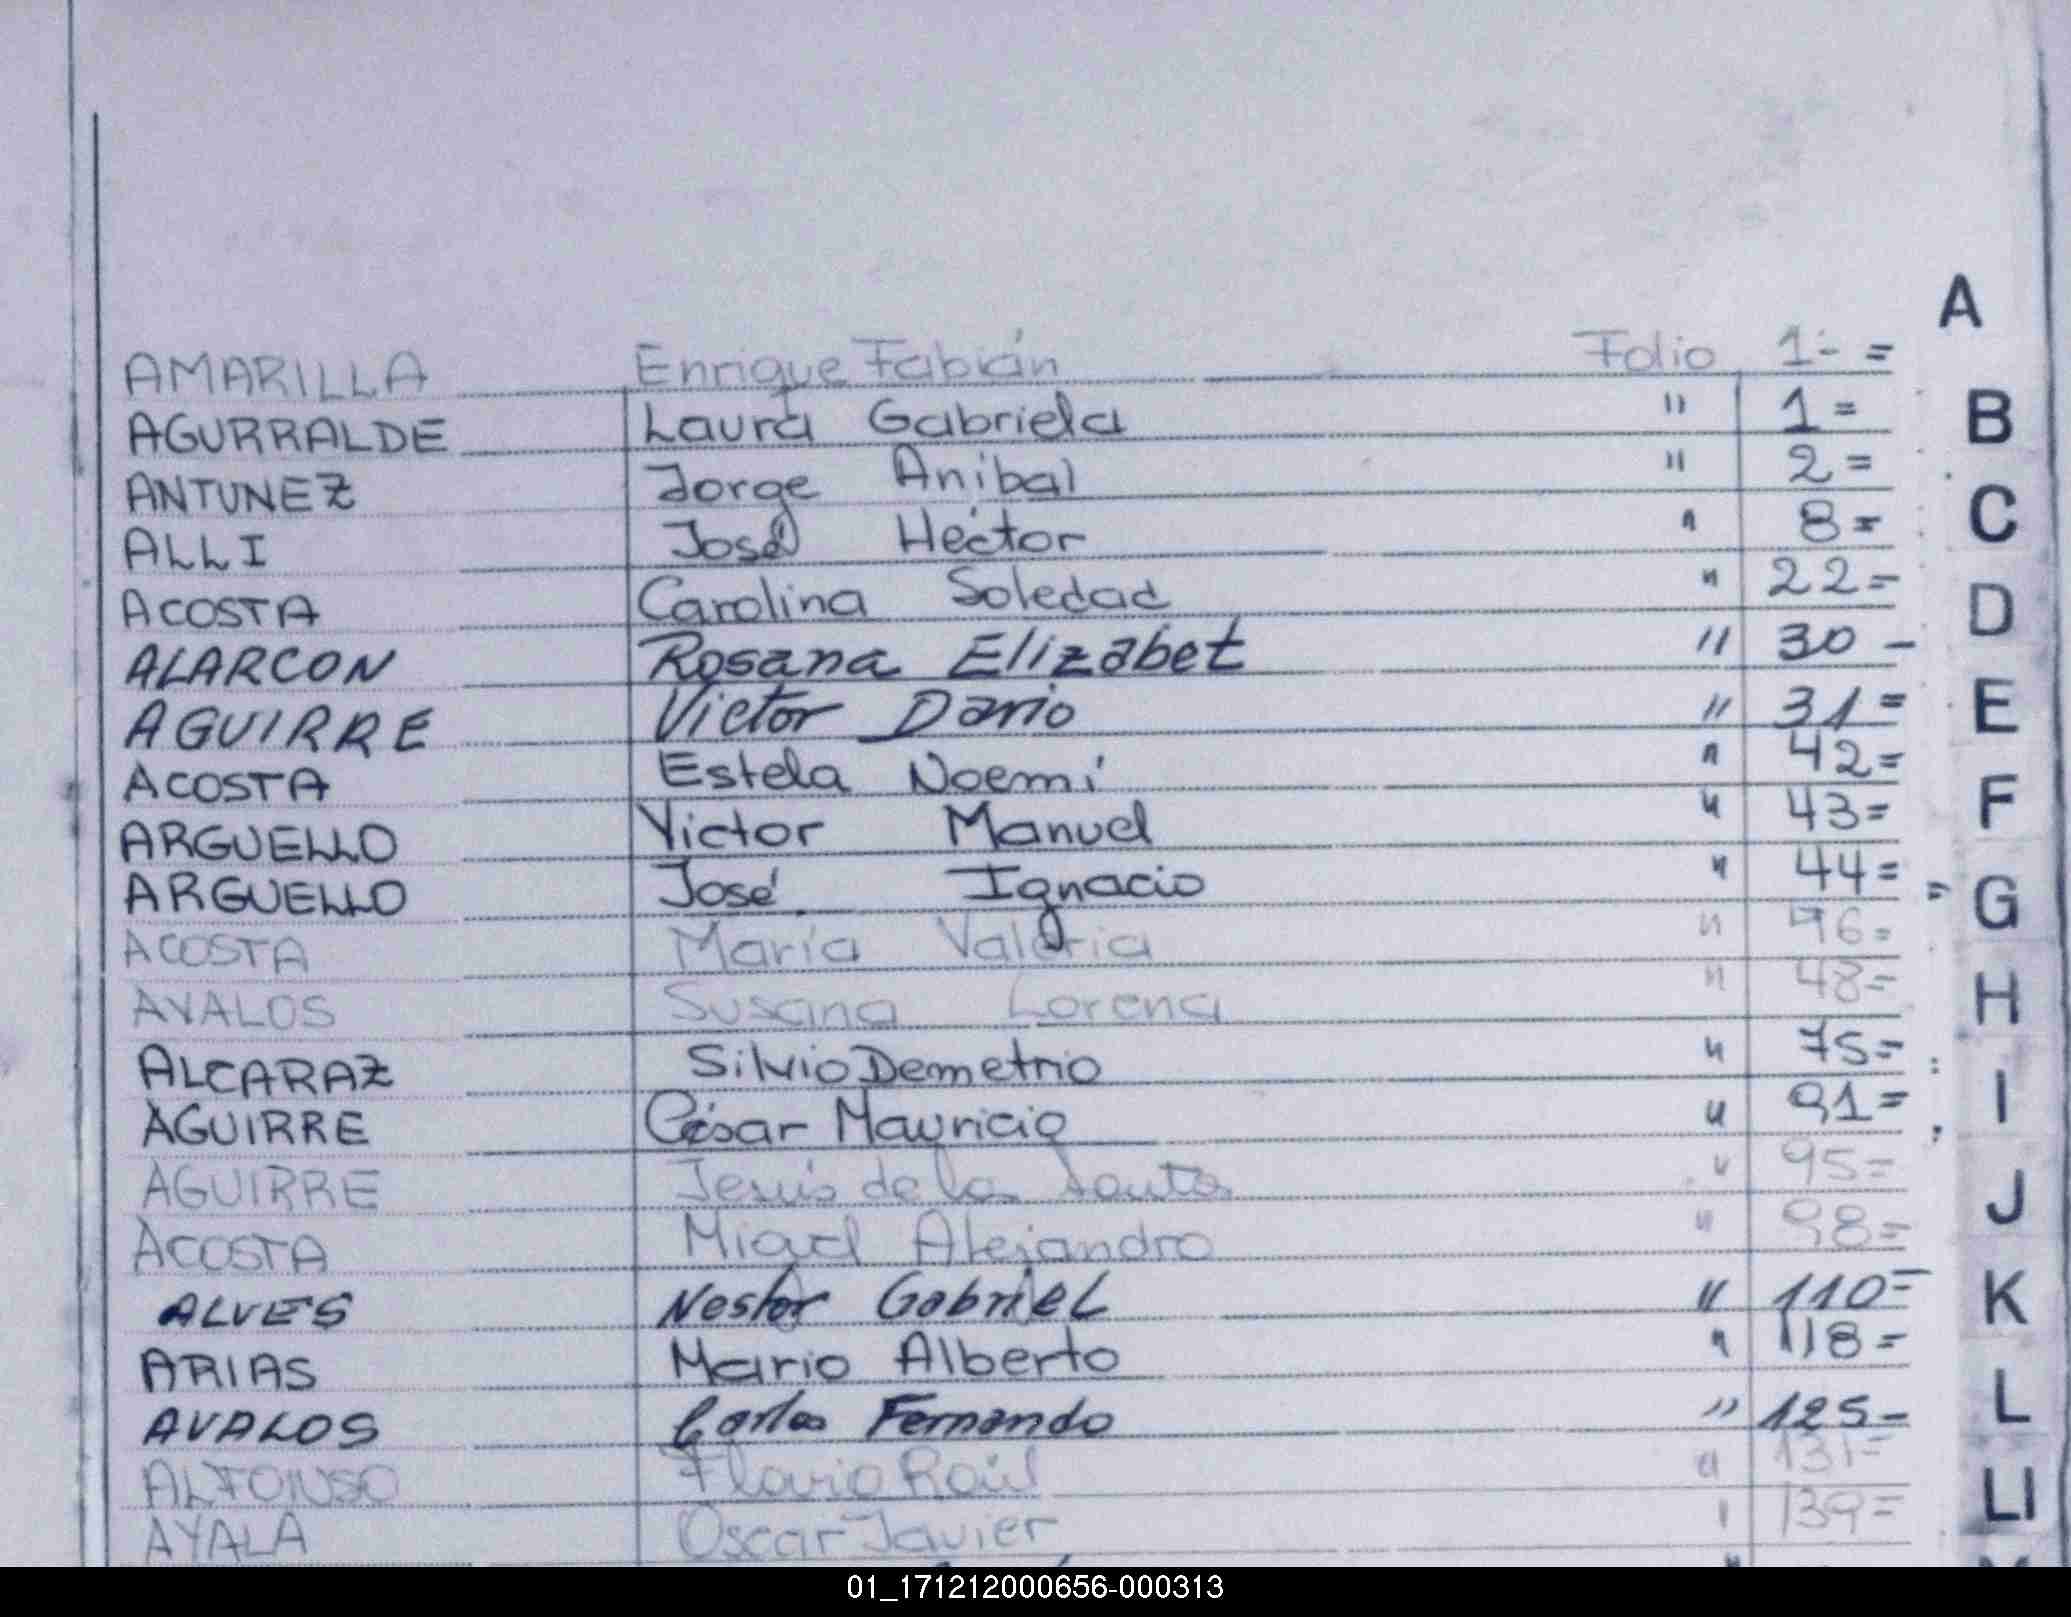 A
AMARILLA Enrique Fabián Folio 1- =
AGURRALDE Laura Gabriela " 1 =
B
ANTUNEZ Jorge Anibal " 2 =
ALLI José Héctor " 8 =
C
ACOSTA Carolina Soledad " 22 =
D
ALARCON Rosana Elizabet " 30 -
AGUIRRE Victor Dario " 31 =
E
ACOSTA Estela Noemí " 42 =
ARGUELLO Victor Manuel " 43 =
F
ARGUELLO José Ignacio " 44 = =
G
ACOSTA María Valeria " 46 =
AVALOS Susana Lorena " 48 =
H
ALCARAZ Silvio Demetrio " 75 =
AGUIRRE César Mauricio " 91 =
I
AGUIRRE Jesús de los Santos " 95 =
J
ACOSTA Miguel Alejandro " 98 =
ALVES Nestor Gabriel " 110 =
K
ARIAS Mario Alberto " 118 =
AVALOS Carlos Fernando " 125 -
L
ALFONSO Flavio Raúl " 131 =
LI
AYALA Oscar Javier " 139 =
01_171212000656-000313